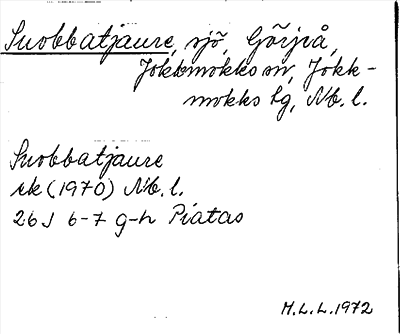 Suobbatjaure, sjö, Görjeå,
Jokkmokks sn, Jokk-
mokks lg, Nb. l.
Suobbatjaure
rk (1970) Nb. l.
26J 6-7 g-h Piatas
M.L.L. 1972